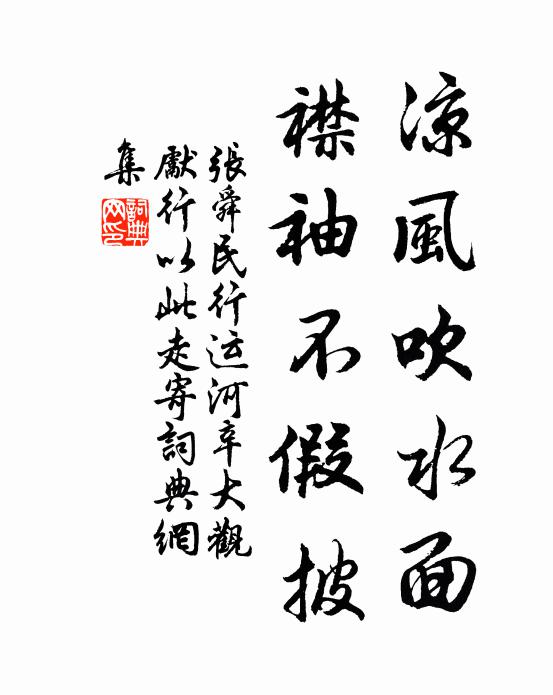 涼風吹水面
襟袖不假披
張舜民行运河辛大觀
獻行以此走寄詞典網
集
詞典网印